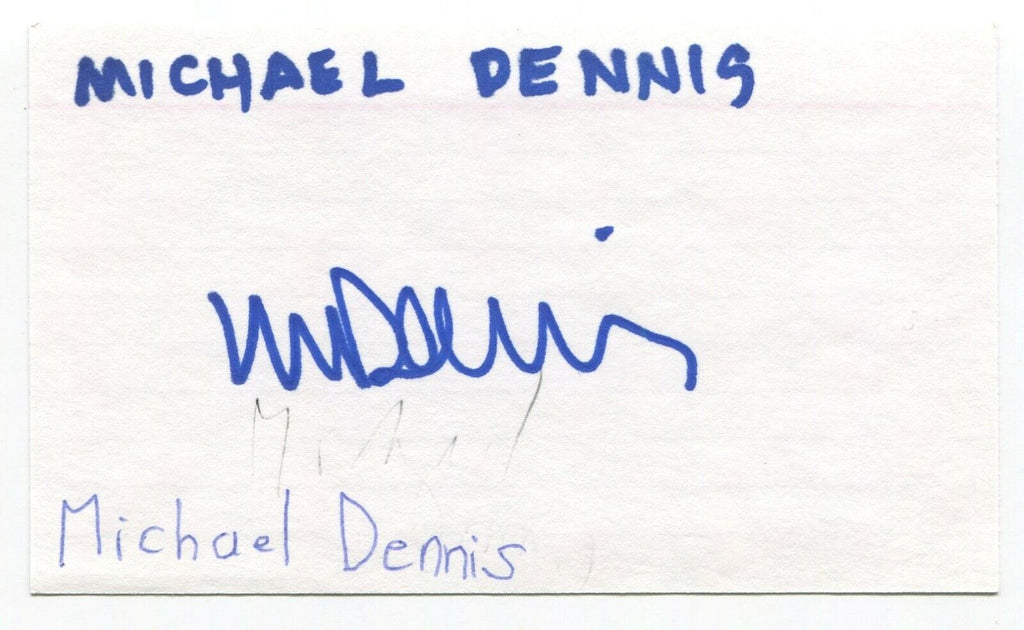 MICHAEL DENNIS
M Dennis
Michael
Michael Dennis